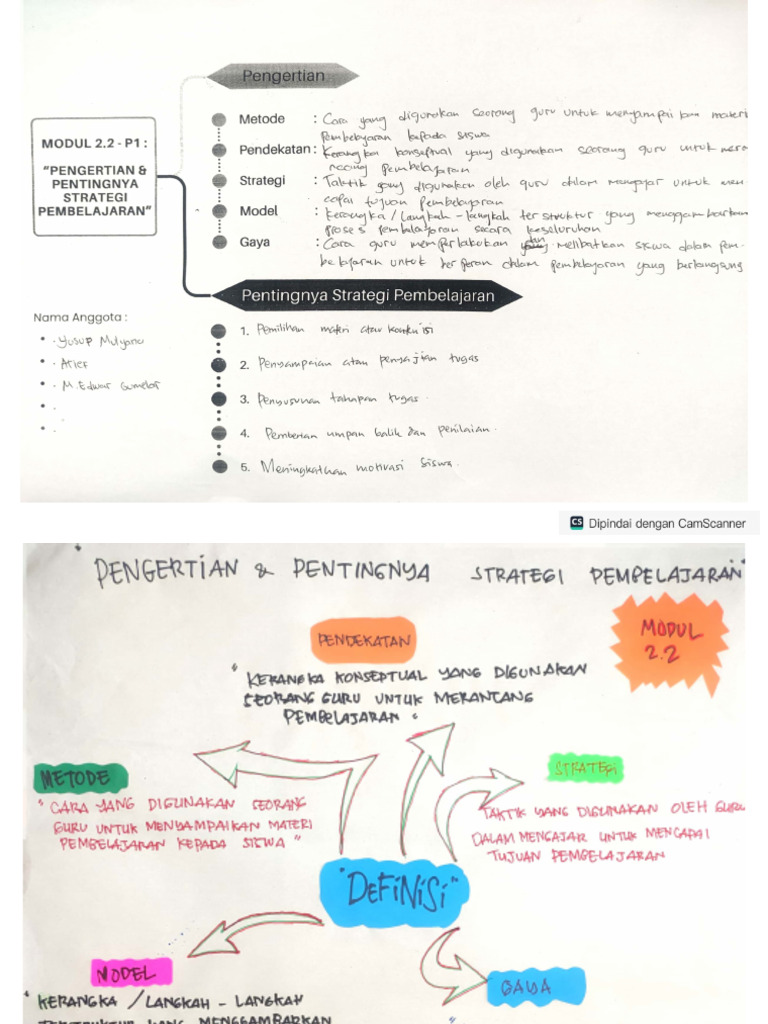 Pengertian
MODUL 2.2 - P1 :
"PENGERTIAN &
PENTINGNYA
STRATEGI
PEMBELAJARAN"
Metode : Cara yang digunakan seorang guru untuk menyampaikan materi
pembelajaran kepada siswa
Pendekatan : Kerangka konseptual yang digunakan seorang guru untuk mera
ncang pembelajaran
Strategi : Taktik yang digunakan oleh guru dalam mengajar untuk men
capai tujuan pembelajaran
Model : Kerangka / Langkah - langkah terstruktur yang menggambarkan
proses pembelajaran secara keseluruhan
Gaya : Cara guru memperlakukan dan melibatkan siswa dalam pem-
belajaran untuk berperan dalam pembelajaran yang berlangsung
Pentingnya Strategi Pembelajaran
Nama Anggota :
• . Yusup Mulyana
• . Arief
• . M. Edwar Gumelar
• .
• .
1. Pemilihan materi atau
2. Penyampaian atau penyajian tugas
3. Penyusunan tahapan tugas.
4. Pemberian umpan balik dan penilaian.
5. Meningkatkan motivasi siswa.
CS Dipindai dengan CamScanner
"PENGERTIAN & PENTINGNYA STRATEGI PEMBELAJARAN"
MODUL
2.2
PENDEKATAN
"KERANGKA KONSEPTUAL YANG DIGUNAKAN
SEORANG GURU UNTUK MERANCANG
PEMBELAJARAN"
METODE
"CARA YANG DIGUNAKAN SEORANG
GURU UNTUK MENYAMPAIKAN MATERI
PEMBELAJARAN KEPADA SISWA"
STRATEGI
TAKTIK YANG DIGUNAKAN OLEH GURU
DALAM MENGAJAR UNTUK MENCAPAI
TUJUAN PEMBELAJARAN
"DEFINISI"
MODEL
"KERANGKA / LANGKAH - LANGKAH
TERSTRUKTUR YANG MENGGAMBARKAN
GAYA